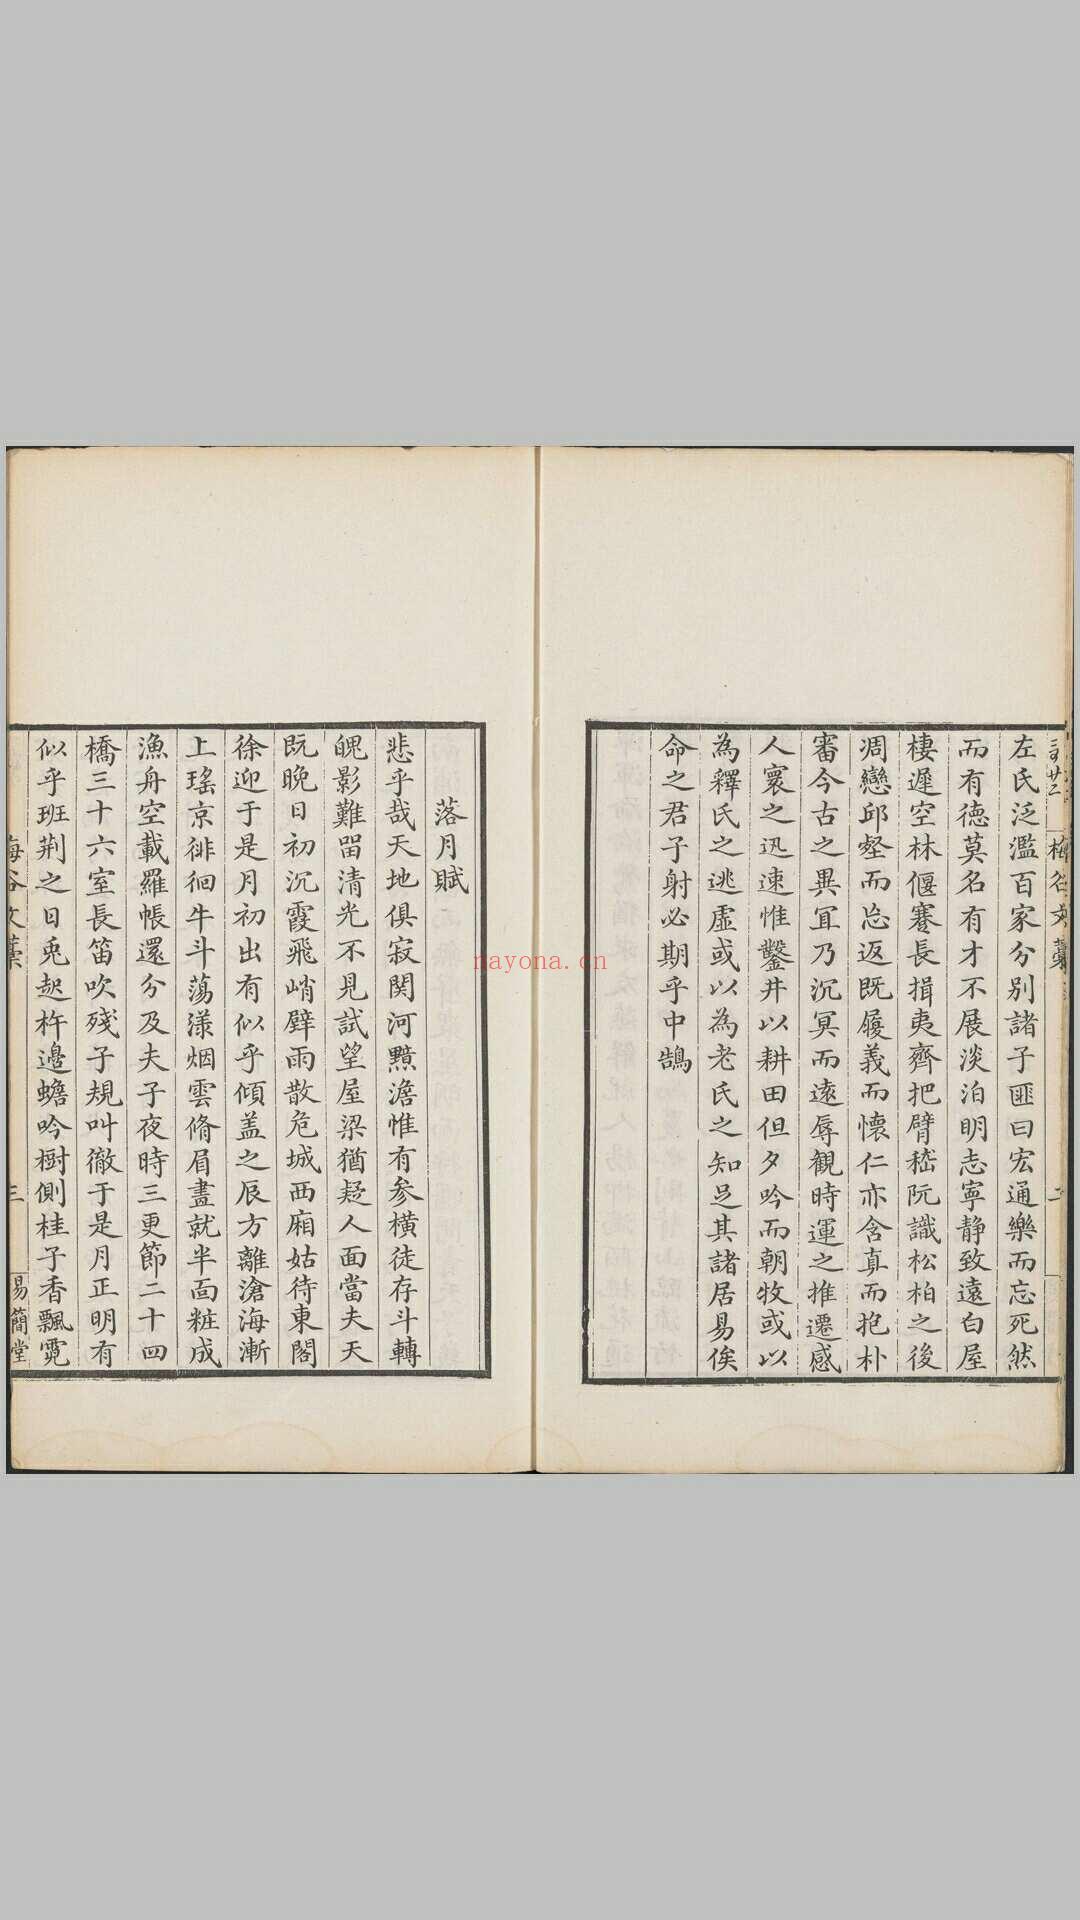 左氏泛濫百家分別諸子匪曰宏通樂而忘死然
而有德莫名有才不展淡泊明志寧静致遠白屋
棲遲空林偃蹇長揖夷齊把臂嵇阮識松柏之後
凋戀邱壑而忘返既履義而懷仁亦含真而抱朴
審今古之異宜乃沉冥而遠辱觀時運之推遷感
人寰之迅速惟鑿井以耕田但夕吟而朝牧或以
為釋氏之逃虛或以為老氏之知足其諸居易俟
命之君子射必期乎中鵠
落月賦
悲乎哉天地俱寂関河黲澹惟有参橫徒存斗轉
魄影難留清光不見試望屋梁猶疑人面當夫天
既晚日初沉霞飛峭壁雨散危城西廂姑待東閣
徐迎于是月初出有似乎傾盖之辰方離滄海漸
上瑤京徘徊牛斗蕩漾烟雲脩眉畫就半面粧成
漁舟空載羅帳還分及夫子夜時三更節二十四
橋三十六室長笛吹殘子規叫徹于是月正明有
似乎班荆之日兎起杵邊蟾吟樹側桂子香飄霓
梅谷文藁
三
易簡堂
nayona.cn